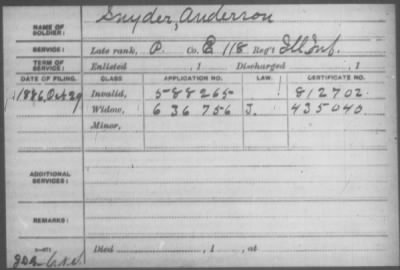 Snyder, Anderson
NAME OF SOLDIER:
SERVICE: Late rank, P. Co. E 118 Reg't Ill Inf.
TERM OF SERVICE: Enlisted , 1 Discharged , 1
DATE OF FILING. CLASS. APPLICATION NO. LAW. CERTIFICATE NO.
1886, Oct 29 Invalid, 588265 812702
Widow, 636756 J. 435040
Minor,
ADDITIONAL SERVICES:
REMARKS:
Died , 1 , at